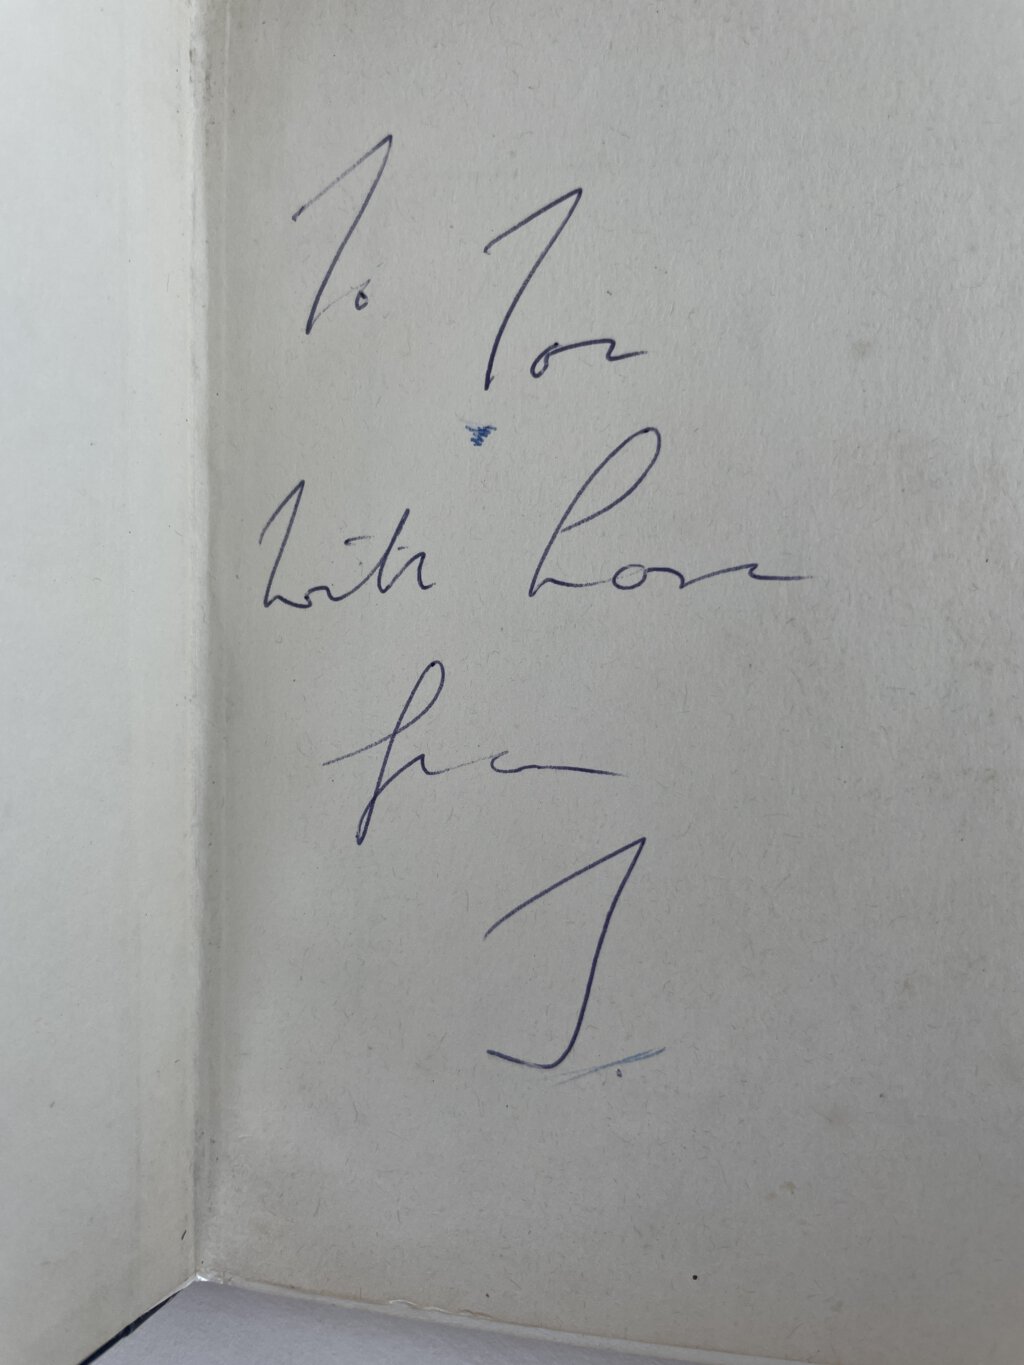 To
with Love
from
J.